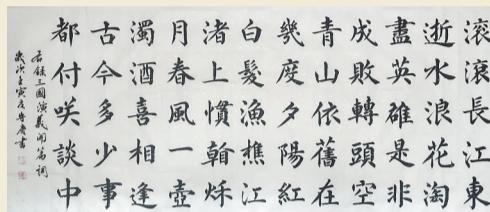 滚滚長江東
逝水浪花淘
盡英雄是非
成敗轉頭空
青山依舊在
幾度夕陽紅
白髮漁樵江
渚上慣翰秌
月春風一壺
濁酒喜相逢
古今多少事
都付咲談中
右録三國演義開篇詞
歲次壬寅書